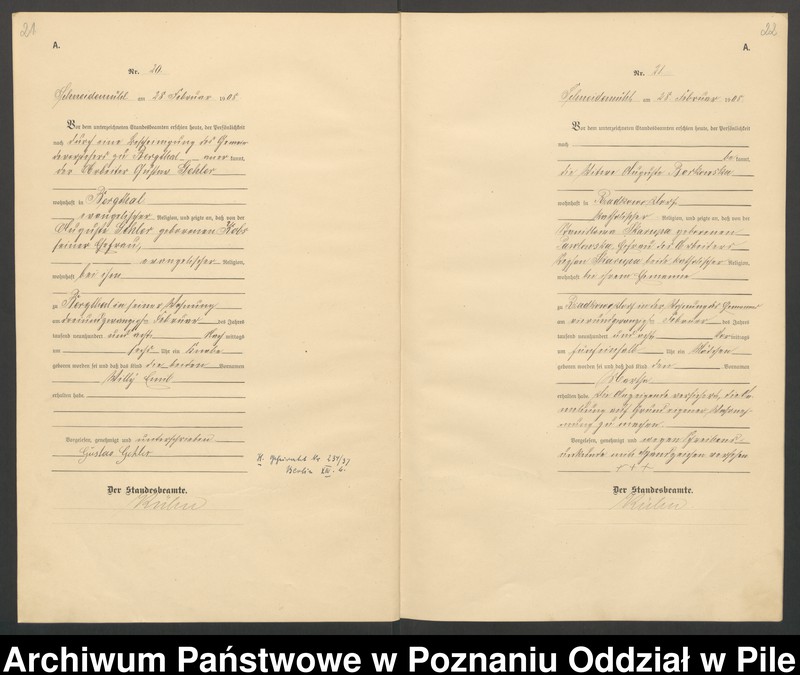 21
A.
Nr. 20.
Schneidemühl am 28 Februar 1908.
Vor dem unterzeichneten Standesbeamten erschien heute, der Persönlichkeit
nach durch eine Bescheinigung des Gemein-
devorstehers zu Bergthal anerkannt,
der Arbeiter Gustav Gehler
wohnhaft in Bergthal
evangelischer Religion, und zeigte an, daß von der
Auguste Gehler geborenen
seiner Ehefrau,
evangelischer Religion,
wohnhaft bei ihm
zu Bergthal in seiner Wohnung
am dreiundzwanzigsten Februar des Jahres
tausend neunhundert und acht Nachmittags
um sechs Uhr ein Knabe
geboren worden sei und daß das Kind die beiden Vornamen
Willy Emil
erhalten habe.
Vorgelesen, genehmigt und unterschrieben
Gustav Gehler
H. Geheiratet Nr 234/37
Berlin XII b.
Der Standesbeamte.
22
A.
Nr. 21
Schneidemühl am 28. Februar 1908.
Vor dem unterzeichneten Standesbeamten erschien heute, der Persönlichkeit
nach
bekannt,
die Witwe Auguste Borkowska
wohnhaft in
katholischer Religion, und zeigte an, daß von der
geborenen
Pawlowska, Ehefrau des Arbeiters
beide katholischer Religion,
wohnhaft bei ihrem Ehemanne
zu in der Wohnung des Ehemannes
am Februar des Jahres
tausend neunhundert und acht Vormittags
um fünfeinhalb Uhr ein Mädchen
geboren worden sei und daß das Kind den Vornamen
Martha
erhalten habe. Die Anzeigende versichert, die An-
meldung auf Grund eigener Wahrneh-
mung zu machen.
Vorgelesen, genehmigt und wegen Schreibens-
unkunde mit Handzeichen versehen
+++
Der Standesbeamte.
Archiwum Państwowe w Poznaniu Oddział w Pile